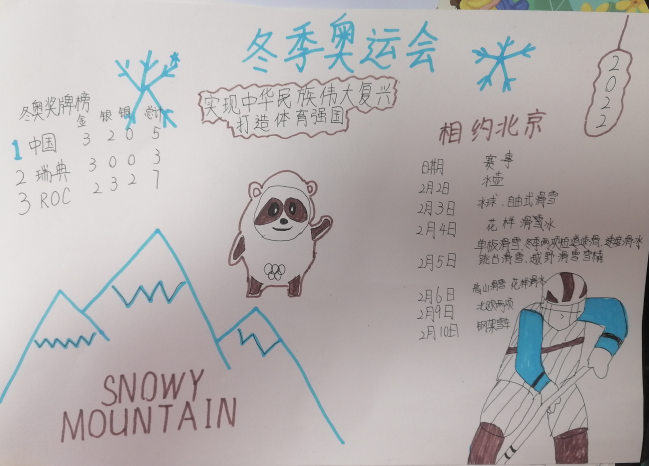 冬季奥运会
2022
实现中华民族伟大复兴
打造体育强国
冬奥奖牌榜
金 银 铜 总计
1 中国 3 2 0 5
2 瑞典 3 0 0 3
3 ROC 2 3 2 7
相约北京
日期 赛事
2月2日 冰壶
2月3日 冰球、自由式滑雪
2月4日 花样滑冰
2月5日 单板滑雪、冬季两项、短道速滑、速度滑冰
跳台滑雪、越野滑雪
2月6日 高山滑雪 花样滑冰
2月9日 北欧两项
2月10日 钢架雪车
SNOWY
MOUNTAIN